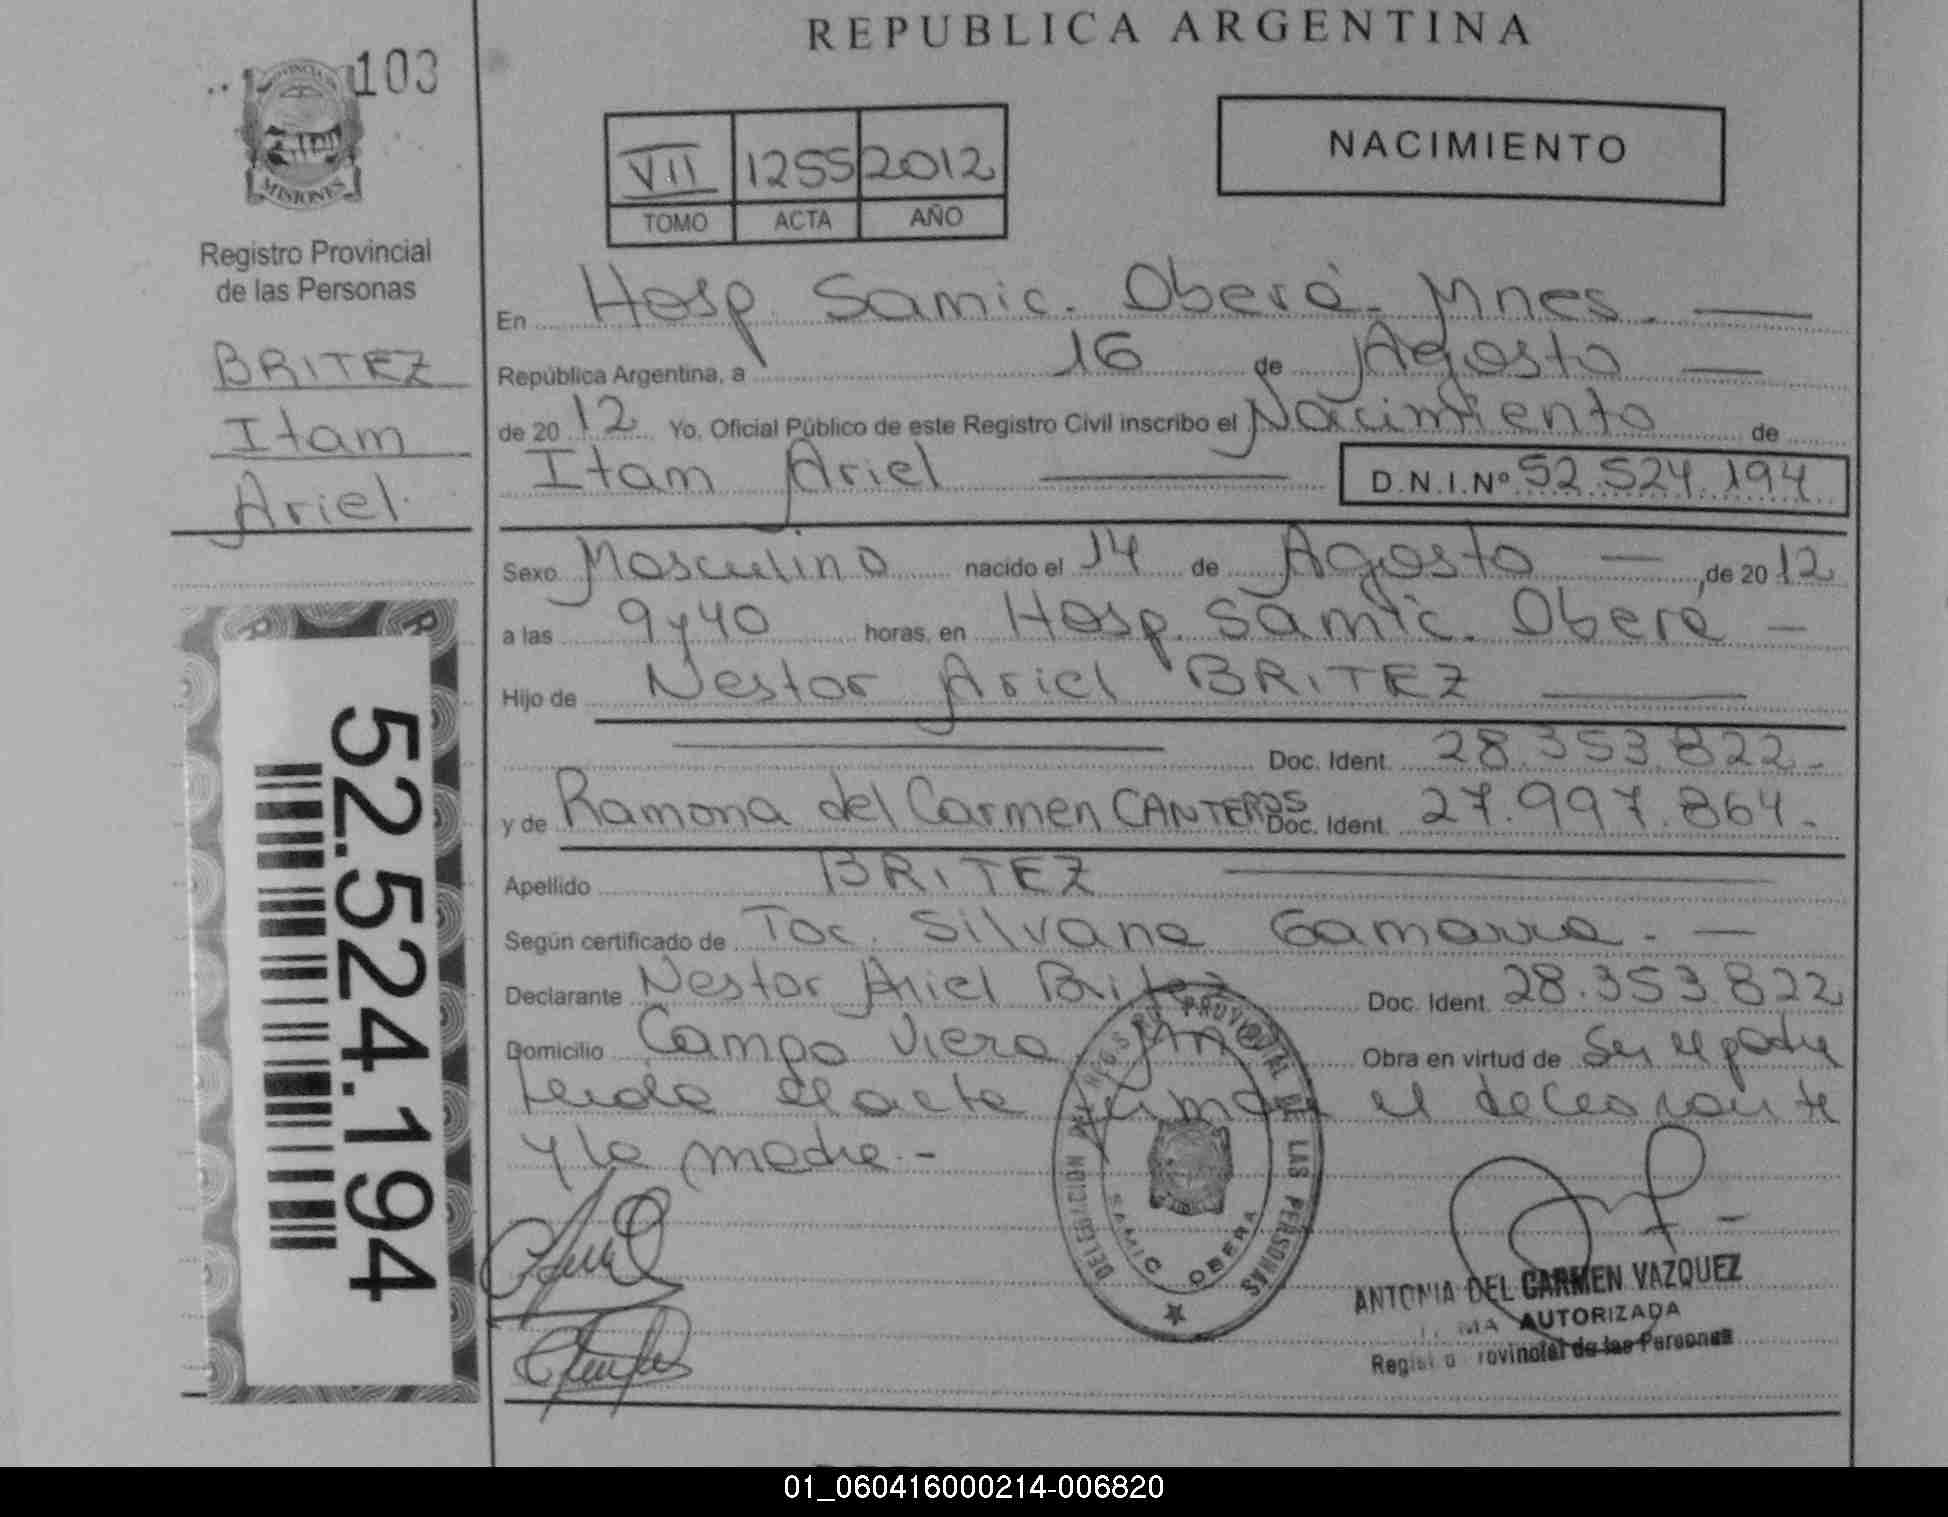 REPUBLICA ARGENTINA
103
PROVINCIA DE
MISIONES
Registro Provincial
de las Personas
BRITEZ
Itam
Ariel.
52.524.194
VII 1255 2012
TOMO ACTA AÑO
NACIMIENTO
En Hosp. Samic. Oberá. Mnes.
República Argentina, a 16 de Agosto
de 20 12 Yo, Oficial Público de este Registro Civil inscribo el Nacimiento de
Itam Ariel D.N.I.Nº 52.524.194
Sexo Masculino nacido el 14 de Agosto ,de 20 12
a las 9y40 horas, en Hosp. Samic. Oberá
Hijo de Nestor Ariel BRITEZ
Doc. Ident. 28.353.822.-
y de Ramona del Carmen CANTEROS Doc. Ident. 27.997.864.-
Apellido BRITEZ
Según certificado de Toc. Silvana Gamarra.-
Declarante Nestor Ariel Britez Doc. Ident. 28.353.822
Domicilio Campo Viera Obra en virtud de Ser el padre
Leida el acta firman el declarante
y la madre.-
DELEGACION DEL REGISTRO PROVINCIAL DE LAS PERSONAS
SAMIC OBERA
ANTONIA DEL CARMEN VAZQUEZ
AUTORIZADA
de las Personas
01_060416000214-006820